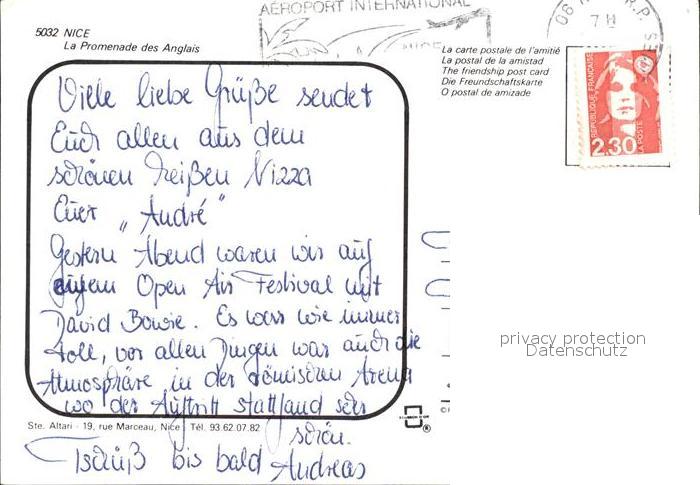 AÉROPORT INTERNATIONAL
5032 NICE
La Promenade des Anglais
La carte postale de l'amitié
La postal de la amistad
The friendship post card
Die Freundschaftskarte
O postal de amizade
7 H
REPUBLIQUE FRANÇAISE
LA POSTE
2,30
Viele liebe Grüße sendet
Euch allen aus dem
schönen heißen Nizza
Euer "André"
Gestern Abend waren wir auf
Open Air Festival mit
David Bowie. Es war wie immer
toll, vor allen Dingen war auch die
Atmosphäre in der römischen Arena
wo der Auftritt stattfand sehr
schön.
Tschüß bis bald Andreas
privacy protection
Datenschutz
Ste. Altari - 19, rue Marceau, Nice Tél. 93.62.07.82